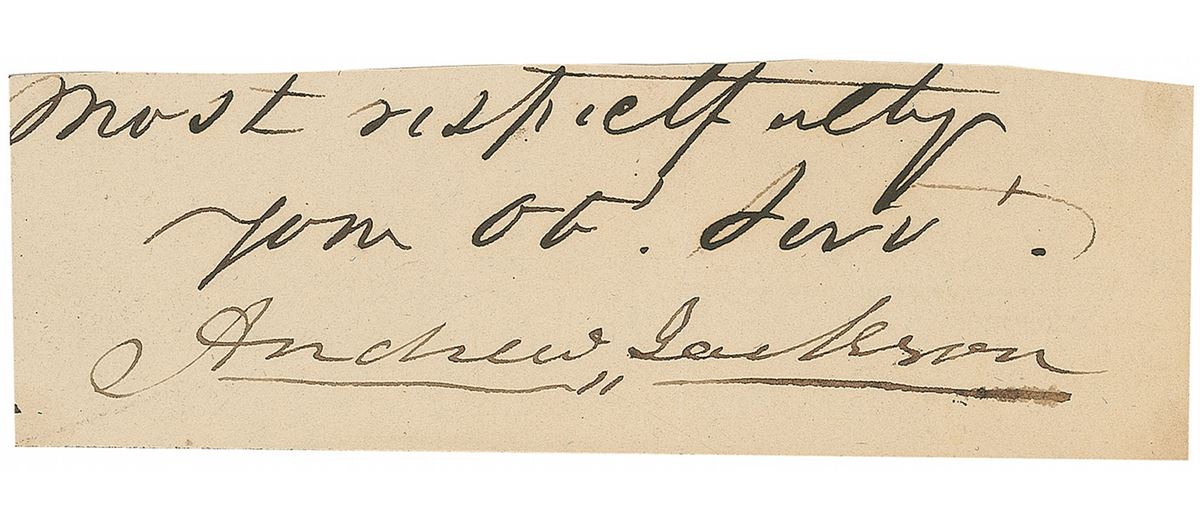 Most respectfully
your ob't. servt.
Andrew Jackson